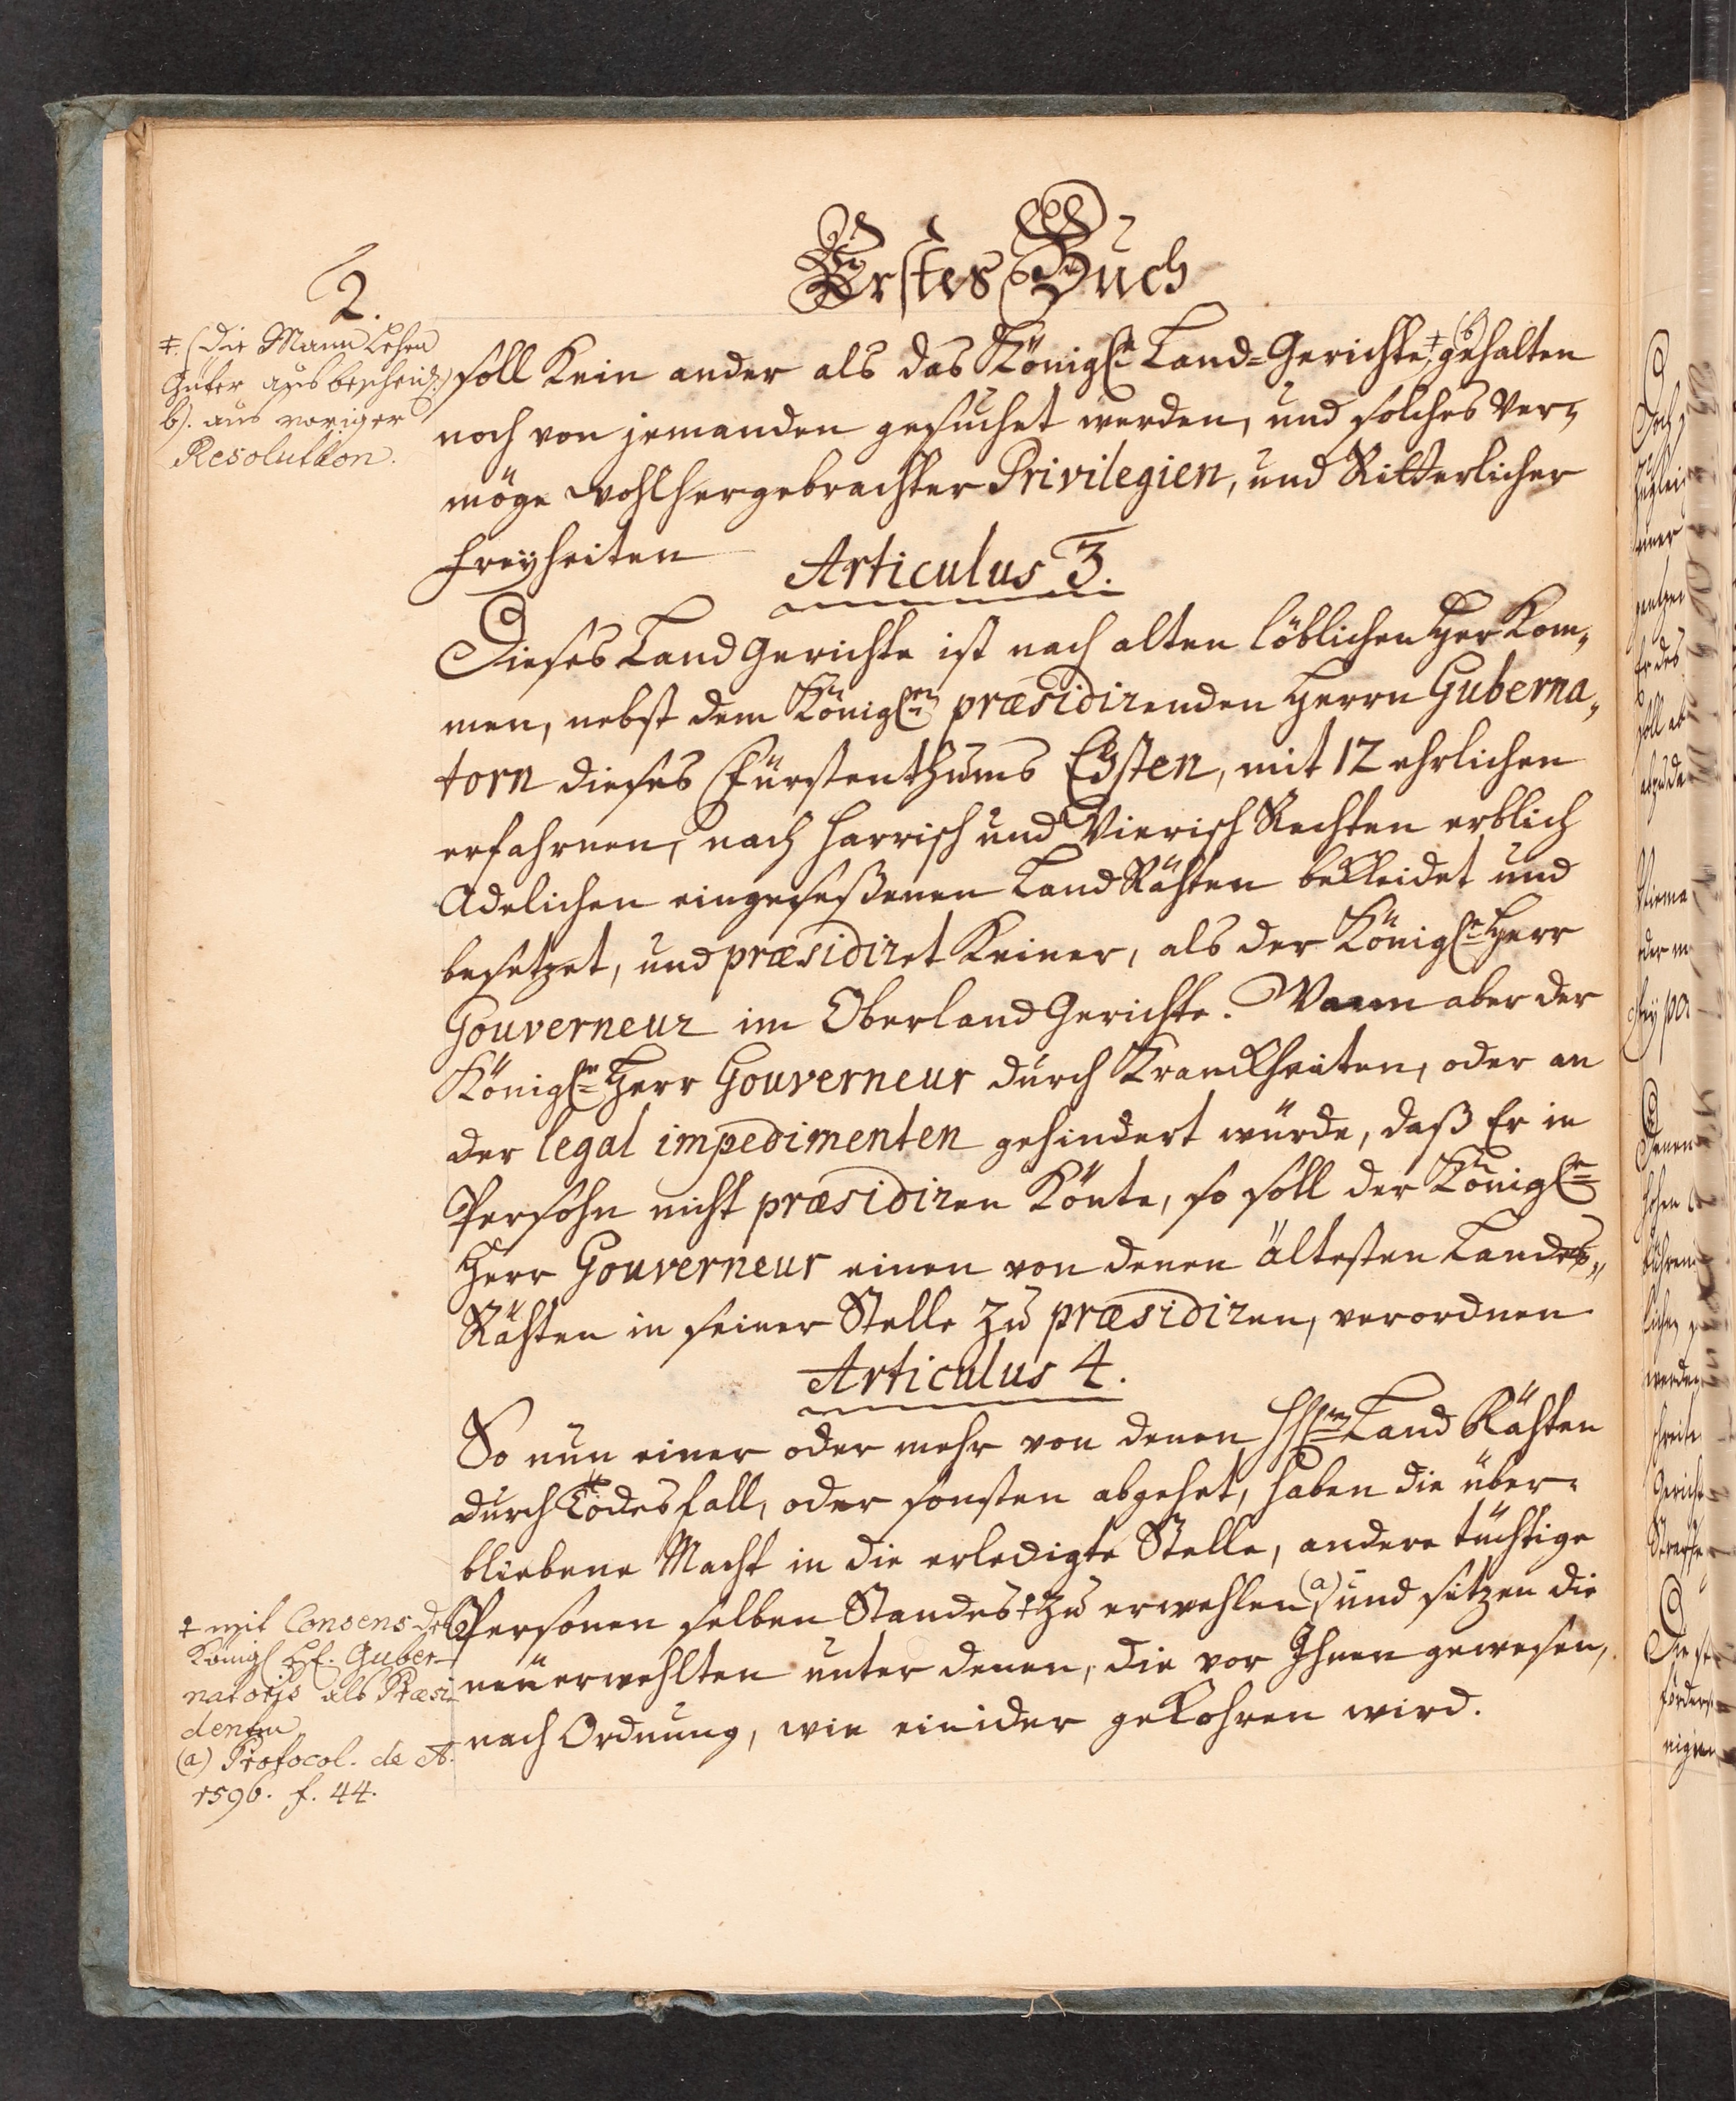 2.
Erstes Buch
‡. (die Mann Lehen
Güter ausbescheid:)
b). aus voriger
Resolution.
soll Kein ander als das Königl. Land-Gerichte ‡ (b) gehalten
noch von jemanden gesuchet werden, und solches Ver-
möge wohlhergebrachter Privilegien, und Ritterlicher
Freyheiten
Articulus 3.
Dieses Land Gerichte ist nach alten löblichen Her Kom-
men, nebst dem Königlen præsidirenden Herrn Guberna-
torn dieses Fürstenthums Ehsten, mit 12 ehrlichen
erfahrnen, nach Harrisch und Wierisch Rechten erblich
Adelichen eingeseßenen Land Rähten bekleidet und
besetzet, und præsidiret Keiner, als der Königle Herr
Gouverneur im Oberland Gerichte. Wann aber der
Königle Herr Gouverneur durch Kranckheiten, oder an
der legal impedimenten gehindert würde, daß Er in
Persohn nicht præsidiren Könte, so soll der Königle
Herr Gouverneur einen von denen ältesten Landes-
Rähten in seiner Stelle zu præsidiren, verordnen
Articulus 4.
So nun einer oder mehr von denen Land Rähten
durch Todesfall, oder sonsten abgehet, haben die über-
bliebene Macht in die erledigte Stelle, andere tüchtige
Personen selben Standes ‡ zu erwehlen (a), und sitzen die
neüerwehlten unter denen, die vor Ihnen gewesen,
nach Ordnung, wie einider gekohren wird.
‡ mit Consens des
Königl H. Guber-
natoris als Præsi-
denten
(a) Protocol. de A.
1596. f. 44.